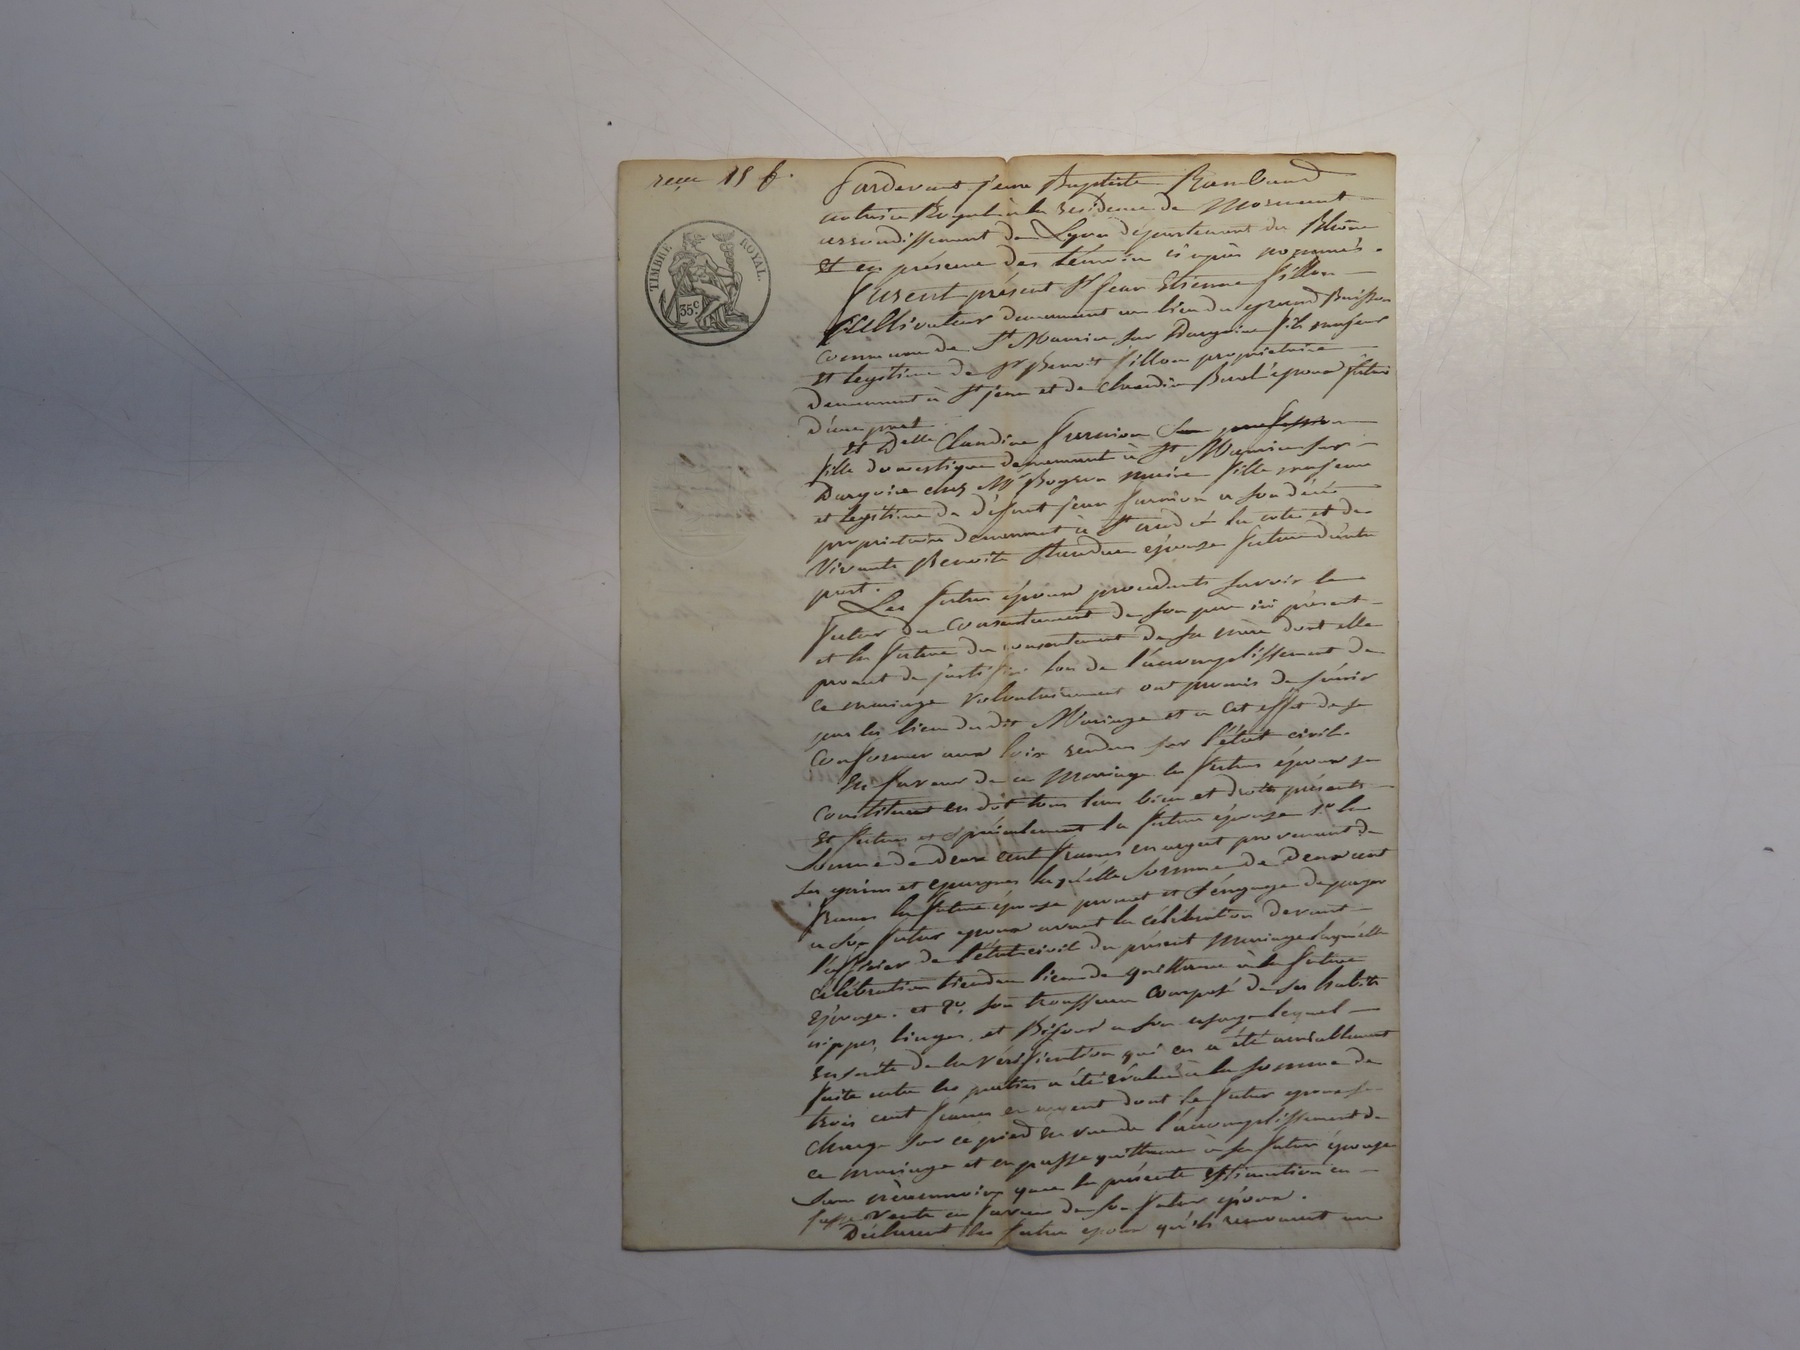 reçu 15 f.
TIMBRE ROYAL
35c
Pardevant jean Baptiste Rambaud
notaire Royal à la residence de Mornant
arrondissement de Lyon département du Rhône
Et en présence des témoins ci après nommés.
furent présent Sr jean Etienne fillon
Cultivateur demeurant au lieu du grand Buisson
commune de St Maurice sur Dargoire fils majeur
et legitime de Sr Benoit fillon propriétaire
demeurant à St jean et de Claudine époux futur
d'une part
Et Delle Claudine furnion
fille domestique demeurant à St Maurice sur
Dargoire chez Mr maire fille majeure
et legitime de défunt jean furnion a son décès
propriétaire demeurant à St la cote et de
Vivante Benoite épouse future d'autre
part.
Les futurs époux procedants savoir le
futur du Consentement de son père ici présent
et la future du consentement de sa mère dont elle
promet de justifier lors de l'accomplissement de
ce mariage volontairement ont promis de s'unir
par les liens du dit Mariage et a cet effet de se
Conformer aux loix rendues sur l'état civil.
En faveur de ce Mariage les futurs époux se
constituent en dot tous leurs biens et droits présents
Et futurs et spécialement la future épouse 1° la
Somme de deux cent francs en argent provenant de
ses gains et epargnes laquelle somme de deux cent
francs la future épouse promet et s'éngage de payer
a son futur epoux avant la célébration devant
l'officier de l'état civil du présent Mariage laquelle
célébration tiendra lieu de quittance à la future
Epouse. et 2°. son trousseau composé de ses habits
nippes, linges, et Bijoux a son usage lequel
En suite de la vérification qui en a été amiablement
faite entre les parties a été évalué à la somme de
trois cent francs en argent dont le futur epoux se
charge sur ce pied en vue de l'accomplissement de
ce mariage et en passe quittance à sa future épouse
Sans néanmoins que la présente Estimation en
fasse vente en faveur de son futur époux.
Déclarent les futurs epoux qu'ils renoncent au